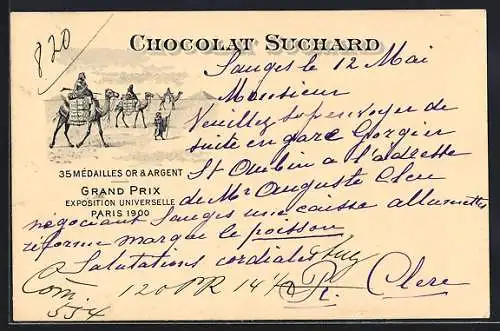 820
CHOCOLAT SUCHARD
Sauges le 12 Mai
Monsieur
Veuillez svp envoyer de
suite en gare Gorgier
St Aubin a l'adresse
de Mr Auguste Clerc
négociant Sauges une caisse allumettes
réforme marque le poisson
Salutations cordiales
Clerc
35 MÉDAILLES OR & ARGENT
GRAND PRIX
EXPOSITION UNIVERSELLE
PARIS 1900
Com.
554
120 PR 14